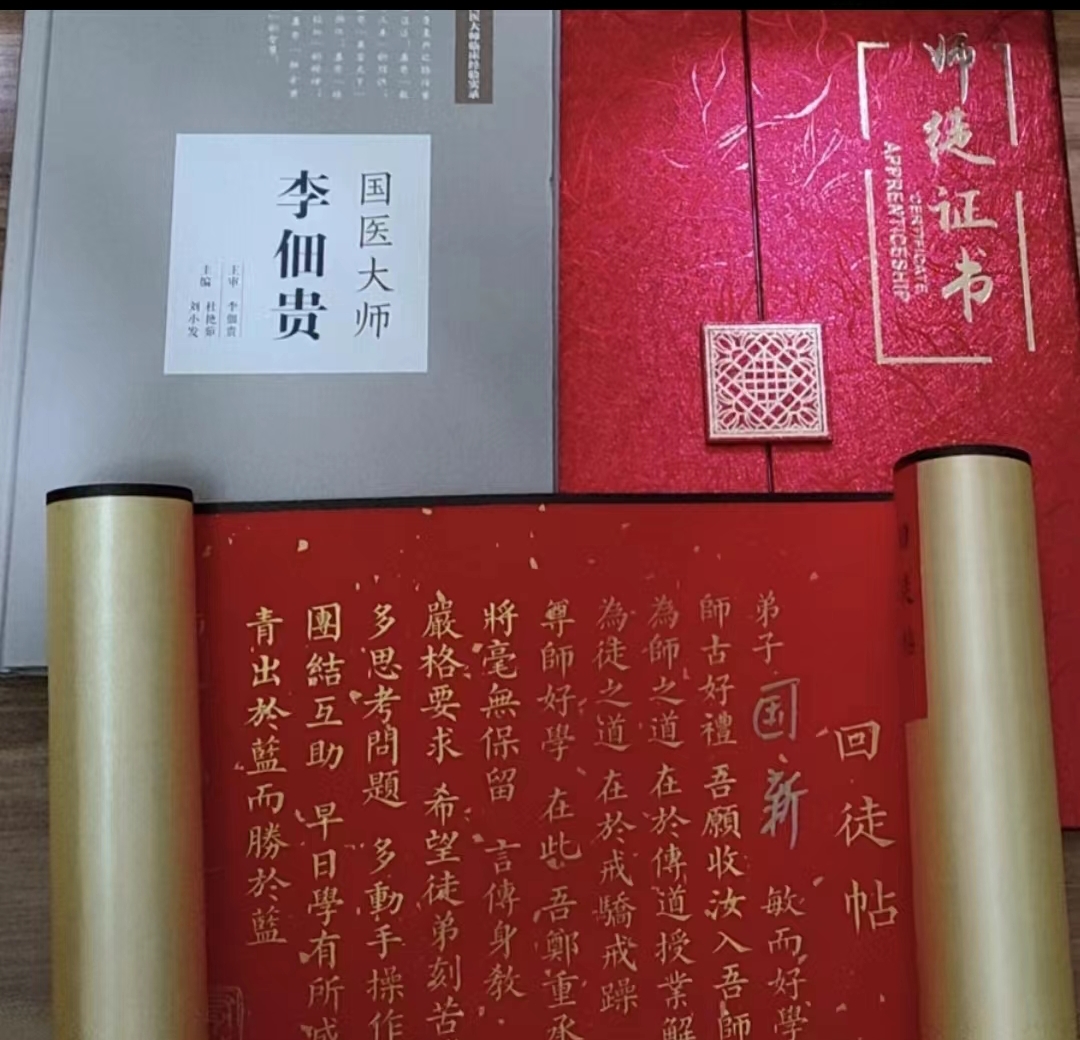 国医大师临床经验实录
国医大师
李佃贵
主审 李佃贵
主编 杜艳茹
刘小发
师徒证书
CERTIFICATE
APPRENTICESHIP
回徒帖
弟子国新 敏而好學
師古好禮 吾願收汝入吾師
為師之道 在於傳道授業解
為徒之道 在於戒驕戒躁
尊師好學 在此 吾鄭重承
將毫無保留 言傳身教
嚴格要求 希望徒弟刻苦
多思考問題 多動手操作
團結互助 早日學有所
青出於藍而勝於藍